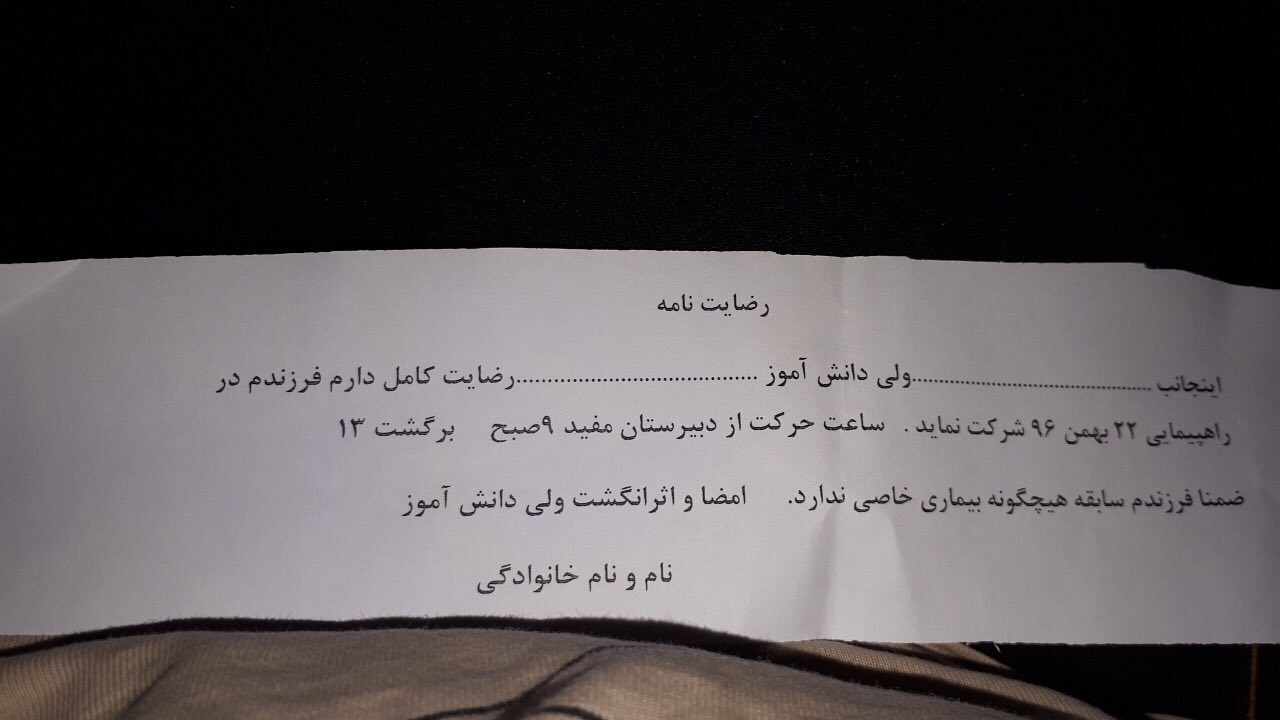 رضایت نامه
اینجانب ........................................ولی دانش آموز ........................................رضایت کامل دارم فرزندم در
راهپیمایی ۲۲ بهمن ۹۶ شرکت نماید . ساعت حرکت از دبیرستان مفید ۹صبح برگشت ۱۳
ضمنا فرزندم سابقه هیچگونه بیماری خاصی ندارد. امضا و اثرانگشت ولی دانش آموز
نام و نام خانوادگی